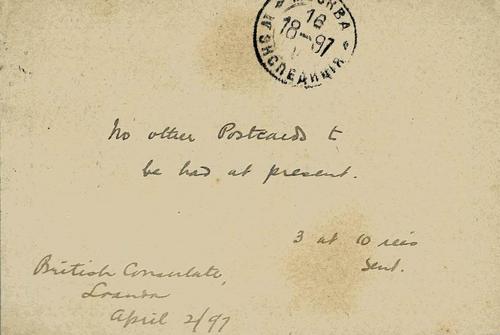 МОСКВА
16
18-97
1
ЭКСПЕДИЦІЯ
No other Postcards t
be had at present.
3 at 10 reis
sent.
British Consulate,
Loanda
April 2/97